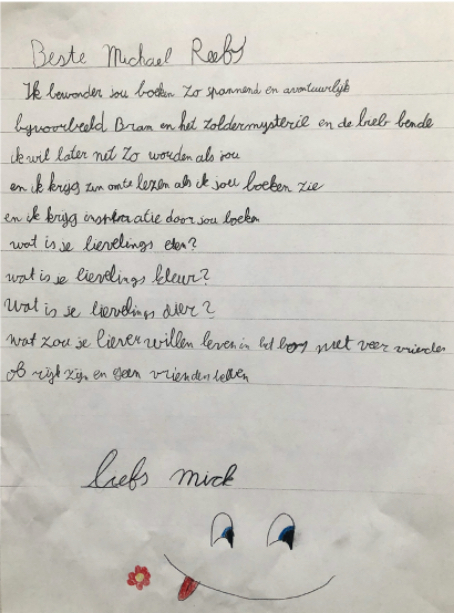 Beste Michael Reefs
Ik bewonder jou boeken zo spannend en avontuurlijk
byvoorbeeld Bram en het zoldermysterie en de bieb bende
ik wil later net zo worden als jou
en ik kryg zin om te lezen als ik jou boeken zie
en ik kryg inspiratie door jou boeken
wat is je lievelings eten?
wat is je lievelings kleur?
Wat is je lievelings dier?
wat zou je liever willen leven in het bos met veer vrienden
of rijk zijn en geen vrienden hebben
liefs mick